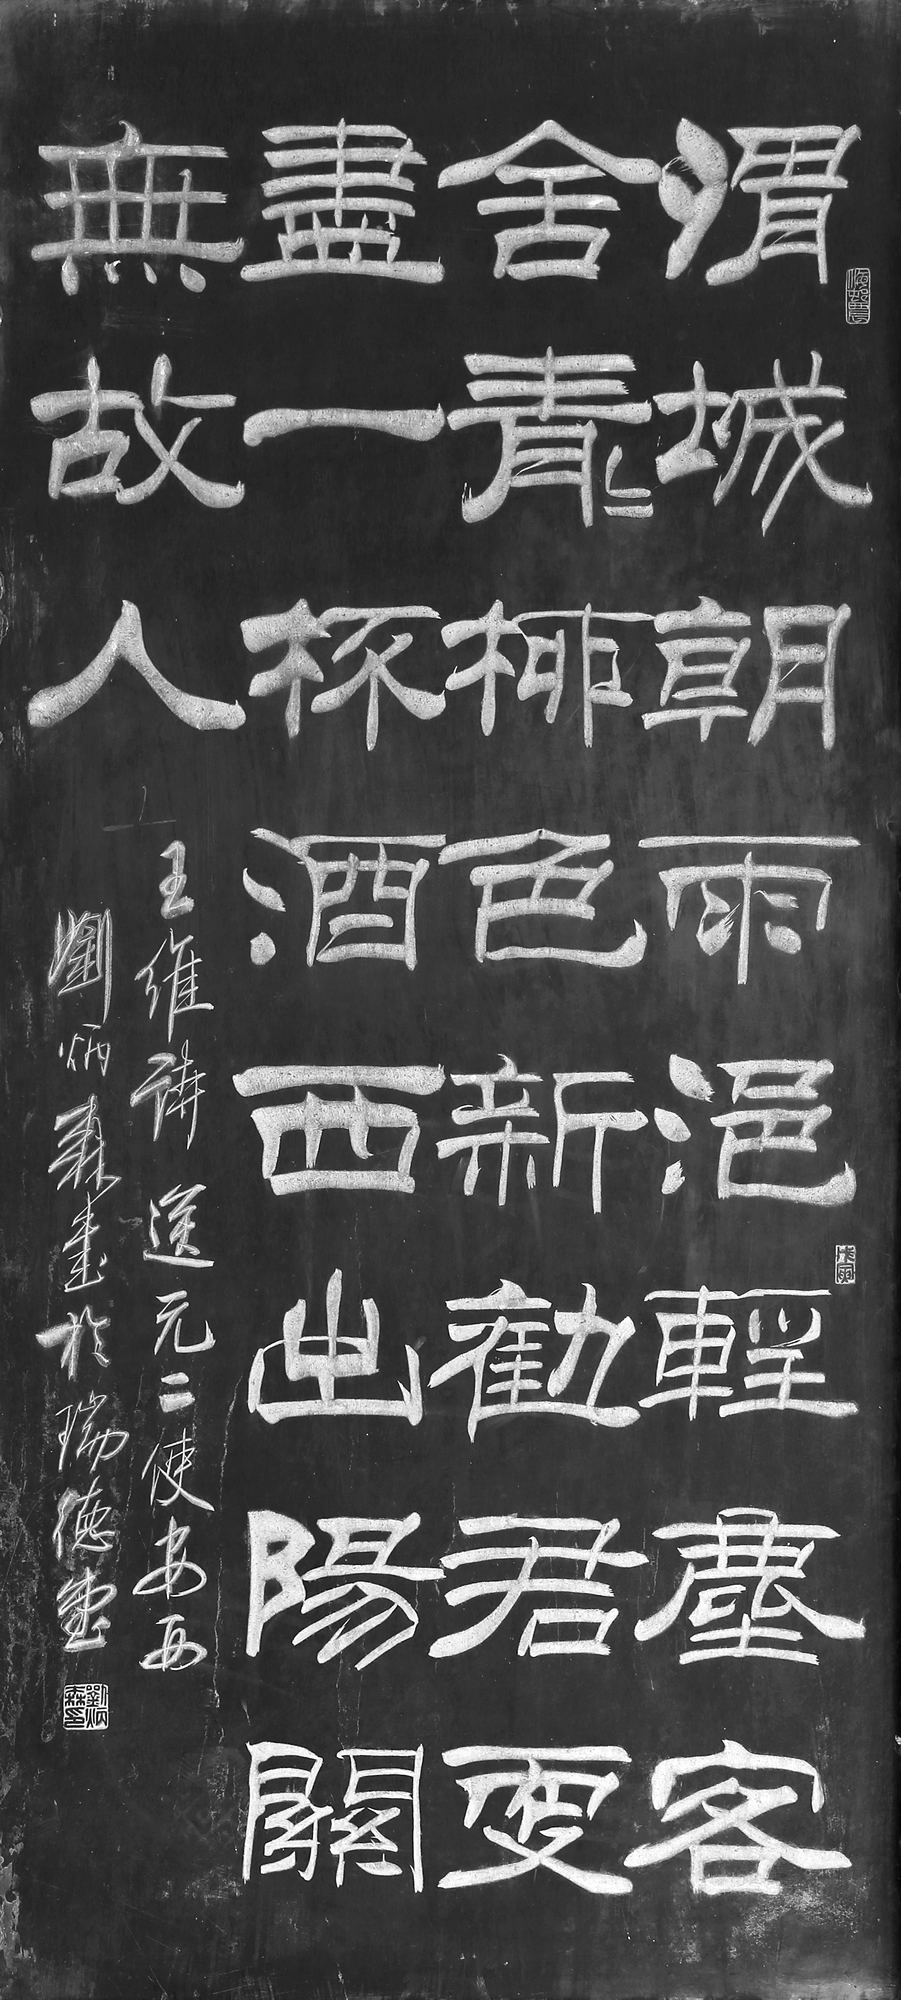 渭城朝雨浥輕塵客
舍青〻柳色新勸君更
盡一杯酒西出陽關
無故人
王維詩送元二使安西
劉炳森書於瑞德堂
戊寅
劉炳森印